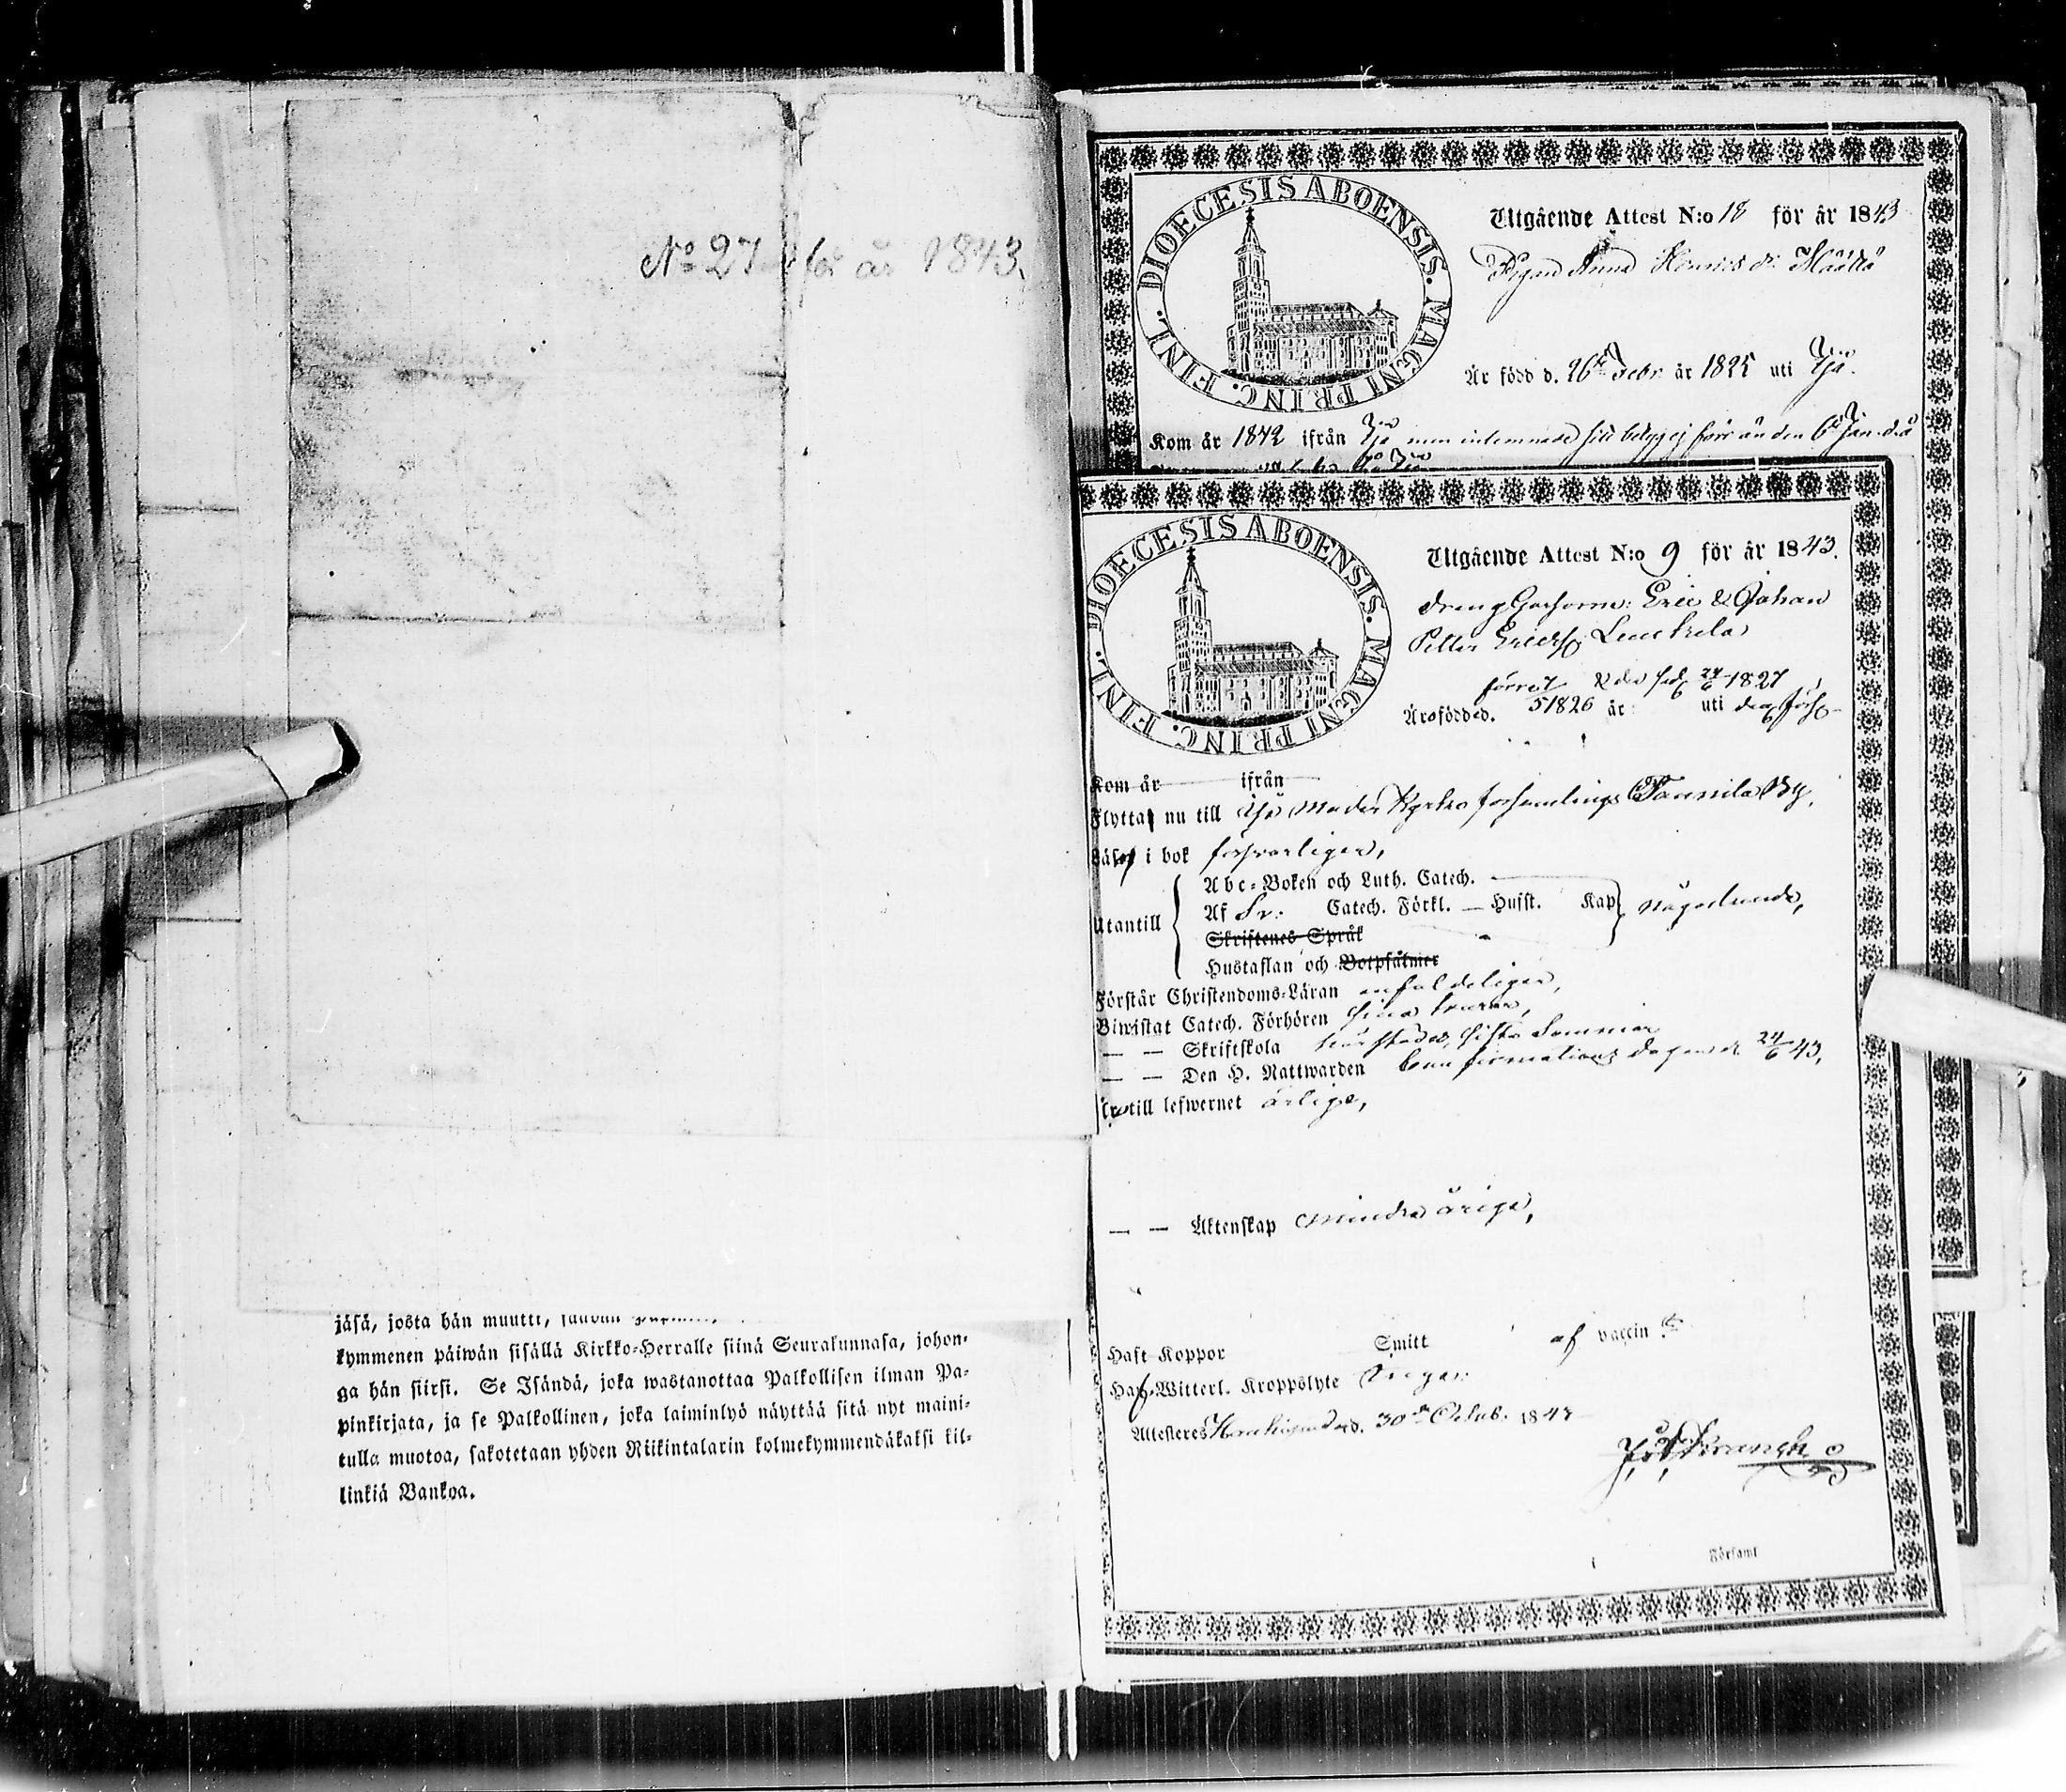 No 27 för år 1843.
jäsä, josta hän muutti,
kymmenen päiwän sisällä Kirkko-Herralle siinä Seurakunnasa, johon-
ga hän siirsi. Se Isändä, joka wastanottaa Palkollisen ilman Pa-
pinkirjata, ja se Palkollinen, joka laiminlyö näyttää sitä nyt maini-
tulla muotoa, sakotetaan yhden Riikintalarin kolmekymmendäkaksi kil-
linkiä Bankoa.
DIOECESIS ABOENSIS. MAGNI PRINC. FINL.
Utgående Attest N:o 18 för år 1843
Pigan Anna Henricsdr Määttä
Är född d. 26te Febr. år 1825 uti Ijo.
Kom år 1842 ifrån Ijo men inlemnade sitt betyg ej förr än den 6te Jan. d.å
DIOECESIS ABOENSIS. MAGNI PRINC. FINL.
Utgående Attest N:o 9 för år 1843.
Dreng Gossarne: Eric & Johan
Petter Ericss.
förra 1827
Äro född d. 5 1826 år uti
Kom år ifrån
Flytta nu till Ijo Moder Kyrko församlings By,
Läsa i bok försvarligen,
Utantill
Abc-Boken och Luth. Catech.
Af Sv. Catech. Förkl. — Husst. Kap någorlunda,
Skriftenes Språk
Hustaflan och Botpsalmer
Förstår Christendoms-Läran enfaldeligen,
Biwistat Catech. Förhören sina
— — Skriftskola härstädes, sista Sommar
— — Den H. Nattwarden Confirmations dagen d. 24/6 43,
Är till lefwernet ärliga,
— — Äktenskap mindre åriga,
Haft Koppor Smitt af vaccin
Haf Witterl. Kroppslyte Inga.
Attesteras d. 30de Octob. 1843
Församl